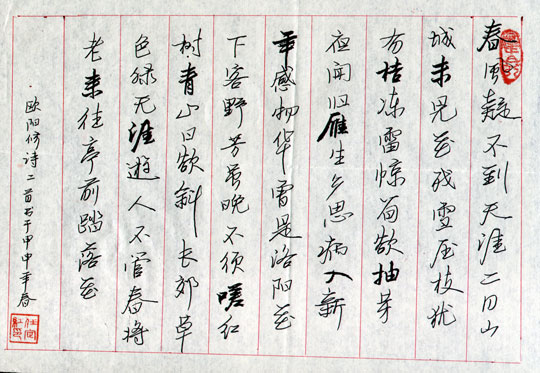 春风疑不到天涯二月山
城未见花残雪压枝犹
有桔冻雷惊笋欲抽芽
夜闻归雁生乡思病入新
年感物华曾是洛阳花
下客野芳虽晚不须嗟红
树青山日欲斜长郊草
色绿无涯遊人不管春将
老来往亭前踏落花
欧阳修诗二首书于甲申年春